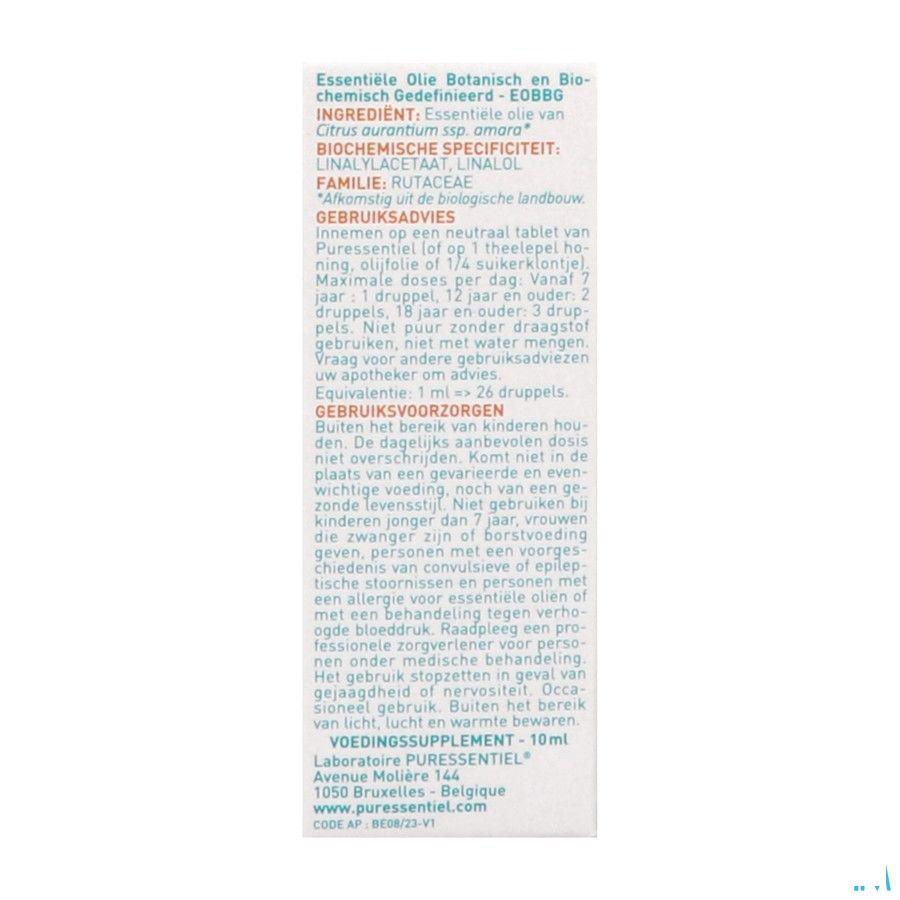 Essentiële Olie Botanisch en Bio-
chemisch Gedefinieerd - EOBBG
INGREDIËNT: Essentiële olie van
Citrus aurantium ssp. amara*
BIOCHEMISCHE SPECIFICITEIT:
LINALYLACETAAT, LINALOL
FAMILIE: RUTACEAE
*Afkomstig uit de biologische landbouw.
GEBRUIKSADVIES
Innemen op een neutraal tablet van
Puressentiel (of op 1 theelepel ho-
ning, olijfolie of 1/4 suikerklontje).
Maximale doses per dag: Vanaf 7
jaar : 1 druppel, 12 jaar en ouder: 2
druppels, 18 jaar en ouder: 3 drup-
pels. Niet puur zonder draagstof
gebruiken, niet met water mengen.
Vraag voor andere gebruiksadviezen
uw apotheker om advies.
Equivalentie: 1 ml => 26 druppels.
GEBRUIKSVOORZORGEN
Buiten het bereik van kinderen hou-
den. De dagelijks aanbevolen dosis
niet overschrijden. Komt niet in de
plaats van een gevarieerde en even-
wichtige voeding, noch van een ge-
zonde levensstijl. Niet gebruiken bij
kinderen jonger dan 7 jaar, vrouwen
die zwanger zijn of borstvoeding
geven, personen met een voorges-
chiedenis van convulsieve of epilep-
tische stoornissen en personen met
een allergie voor essentiële oliën of
met een behandeling tegen verho-
ogde bloeddruk. Raadpleeg een pro-
fessionele zorgverlener voor perso-
nen onder medische behandeling.
Het gebruik stopzetten in geval van
gejaagdheid of nervositeit. Occa-
sioneel gebruik. Buiten het bereik
van licht, lucht en warmte bewaren.
VOEDINGSSUPPLEMENT - 10ml
Laboratoire PURESSENTIEL®
Avenue Molière 144
1050 Bruxelles - Belgique
www.puressentiel.com
CODE AP : BE08/23-V1